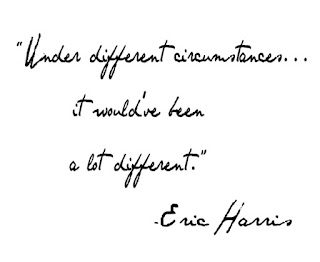 "Under different circumstances...
it would've been
a lot different."
-Eric Harris